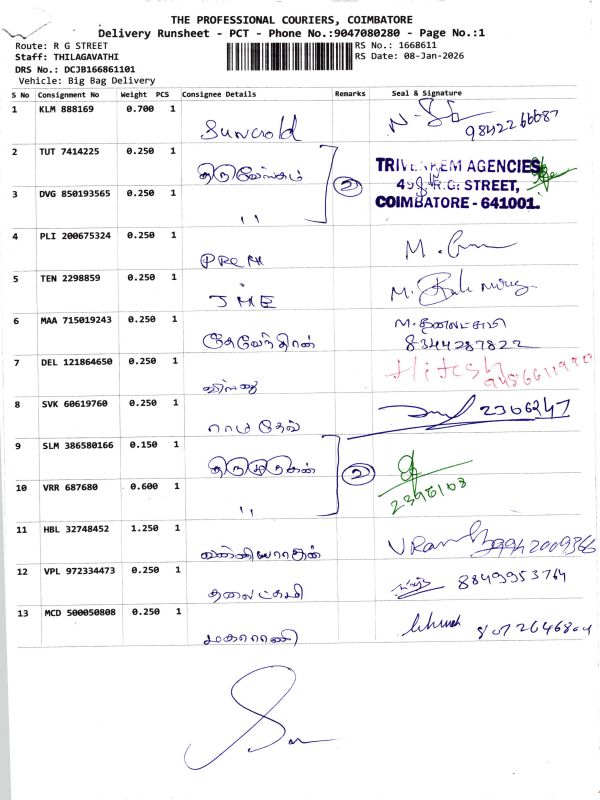 THE PROFESSIONAL COURIERS, COIMBATORE
Delivery Runsheet - PCT - Phone No.:9047080280 - Page No.:1
Route: R G STREET
RS No.: 1668611
Staff: THILAGAVATHI
RS Date: 08-Jan-2026
DRS No.: DCJB166861101
Vehicle: Big Bag Delivery
S No Consignment No Weight PCS Consignee Details Remarks Seal & Signature
1 KLM 888169 0.700 1
9842266687
2 TUT 7414225 0.250 1
2
TRIVENKEM AGENCIES
3 DVG 850193565 0.250 1 "
R.G. STREET,
COIMBATORE - 641001.
4 PLI 200675324 0.250 1 PREM
5 TEN 2298859 0.250 1 JME
6 MAA 715019243 0.250 1
8344287822
7 DEL 121864650 0.250 1
Hitesh
8 SVK 60619760 0.250 1 ராமதேவ்
2366247
9 SLM 386580166 0.150 1 திருமுருகன்
2
10 VRR 687680 0.600 1 "
2396108
11 HBL 32748452 1.250 1
12 VPL 972334473 0.250 1 தனலட்சுமி
8849953764
13 MCD 500050808 0.250 1 மகாராணி